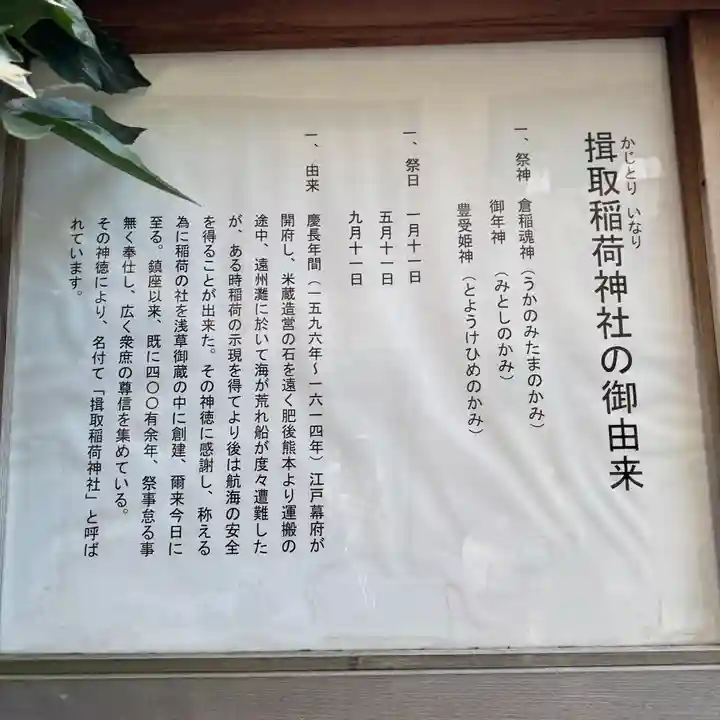 かじとり いなり
揖取稲荷神社の御由来
一、祭神 倉稲魂神（うかのみたまのかみ）
御年神 （みとしのかみ）
豊受姫神（とようけひめのかみ）
一、祭日 一月十一日
五月十一日
九月十一日
一、由来 慶長年間（一五九六年〜一六一四年）江戸幕府が
開府し、米蔵造営の石を遠く肥後熊本より運搬の
途中、遠州灘に於いて海が荒れ船が度々遭難した
が、ある時稲荷の示現を得てより後は航海の安全
を得ることが出来た。その神徳に感謝し、称える
為に稲荷の社を浅草御蔵の中に創建、爾来今日に
至る。鎮座以来、既に四〇〇有余年、祭事怠る事
無く奉仕し、広く衆庶の尊信を集めている。
その神徳により、名付て「揖取稲荷神社」と呼ば
れています。